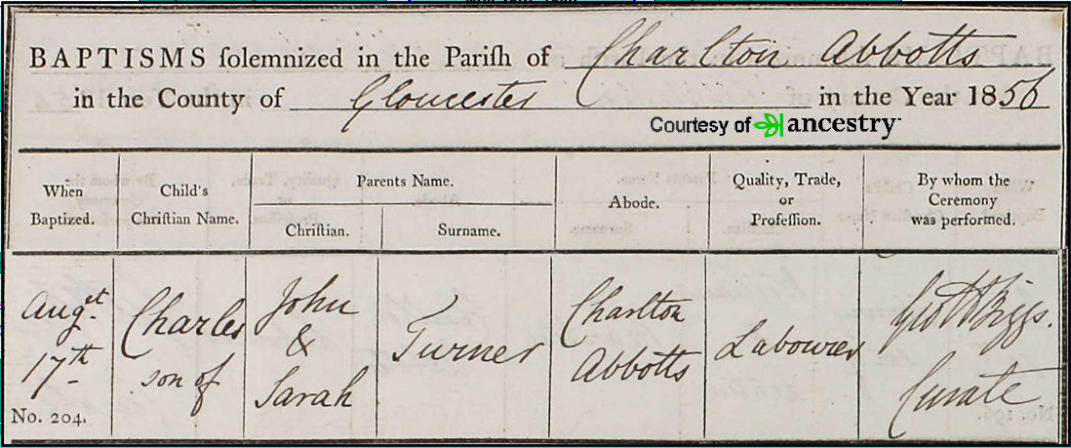 BAPTISMS ſolemnized in the Pariſh of Charlton Abbotts
in the County of Gloucester in the Year 1856
Courtesy of ancestry
When Baptized.
Child's Chriſtian Name.
Parents Name.
Chriſtian.
Surname.
Abode.
Quality, Trade, or Profeſſion.
By whom the Ceremony was performed.
Augst. 17th
No. 204.
Charles son of
John & Sarah
Turner
Charlton Abbotts
Labourer
Geo H Biggs. Curate